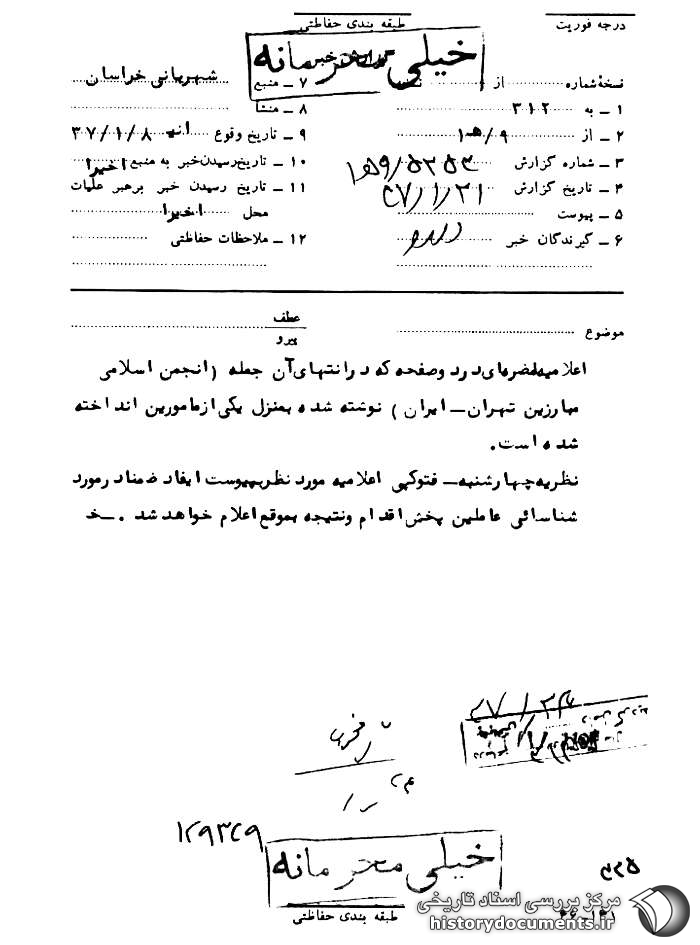 درجه فوریت
طبقه بندی حفاظتی
خیلی محرمانه
نسخهٔ شماره از نسخه
۱ ـ به ۳۱۲
۲ ـ از ۹/هـ۱
۳ ـ شماره گزارش
۴ ـ تاریخ گزارش ۳۷/۱/۲۱
۵ ـ پیوست
۶ ـ گیرندگان خبر
۷ ـ منبع شهربانی خراسان
۸ ـ منشأ
۹ ـ تاریخ وقوع ۳۷/۱/۸
۱۰ ـ تاریخ رسیدن خبر به منبع اخیرا
۱۱ ـ تاریخ رسیدن خبر برهبر عملیات
محل اخیرا
۱۲ ـ ملاحظات حفاظتی
موضوع
عطف
پیرو
اعلامیه مضره‌ای در دو صفحه که در انتهای آن جمله (انجمن اسلامی
مبارزین تهران ـ ایران) نوشته شده بمنزل یکی از مامورین انداخته
شده است.
نظریه چهارشنبه ـ فتوکپی اعلامیه مورد نظر بپیوست ایفاد ضمنا در مورد
شناسائی عاملین پخش اقدام و نتیجه بموقع اعلام خواهد شد . ـ خ
۳۷/۱/۲۴
۱۲۹۳۲۹
خیلی محرمانه
طبقه بندی حفاظتی
مرکز بررسی اسناد تاریخی
historydocuments.ir